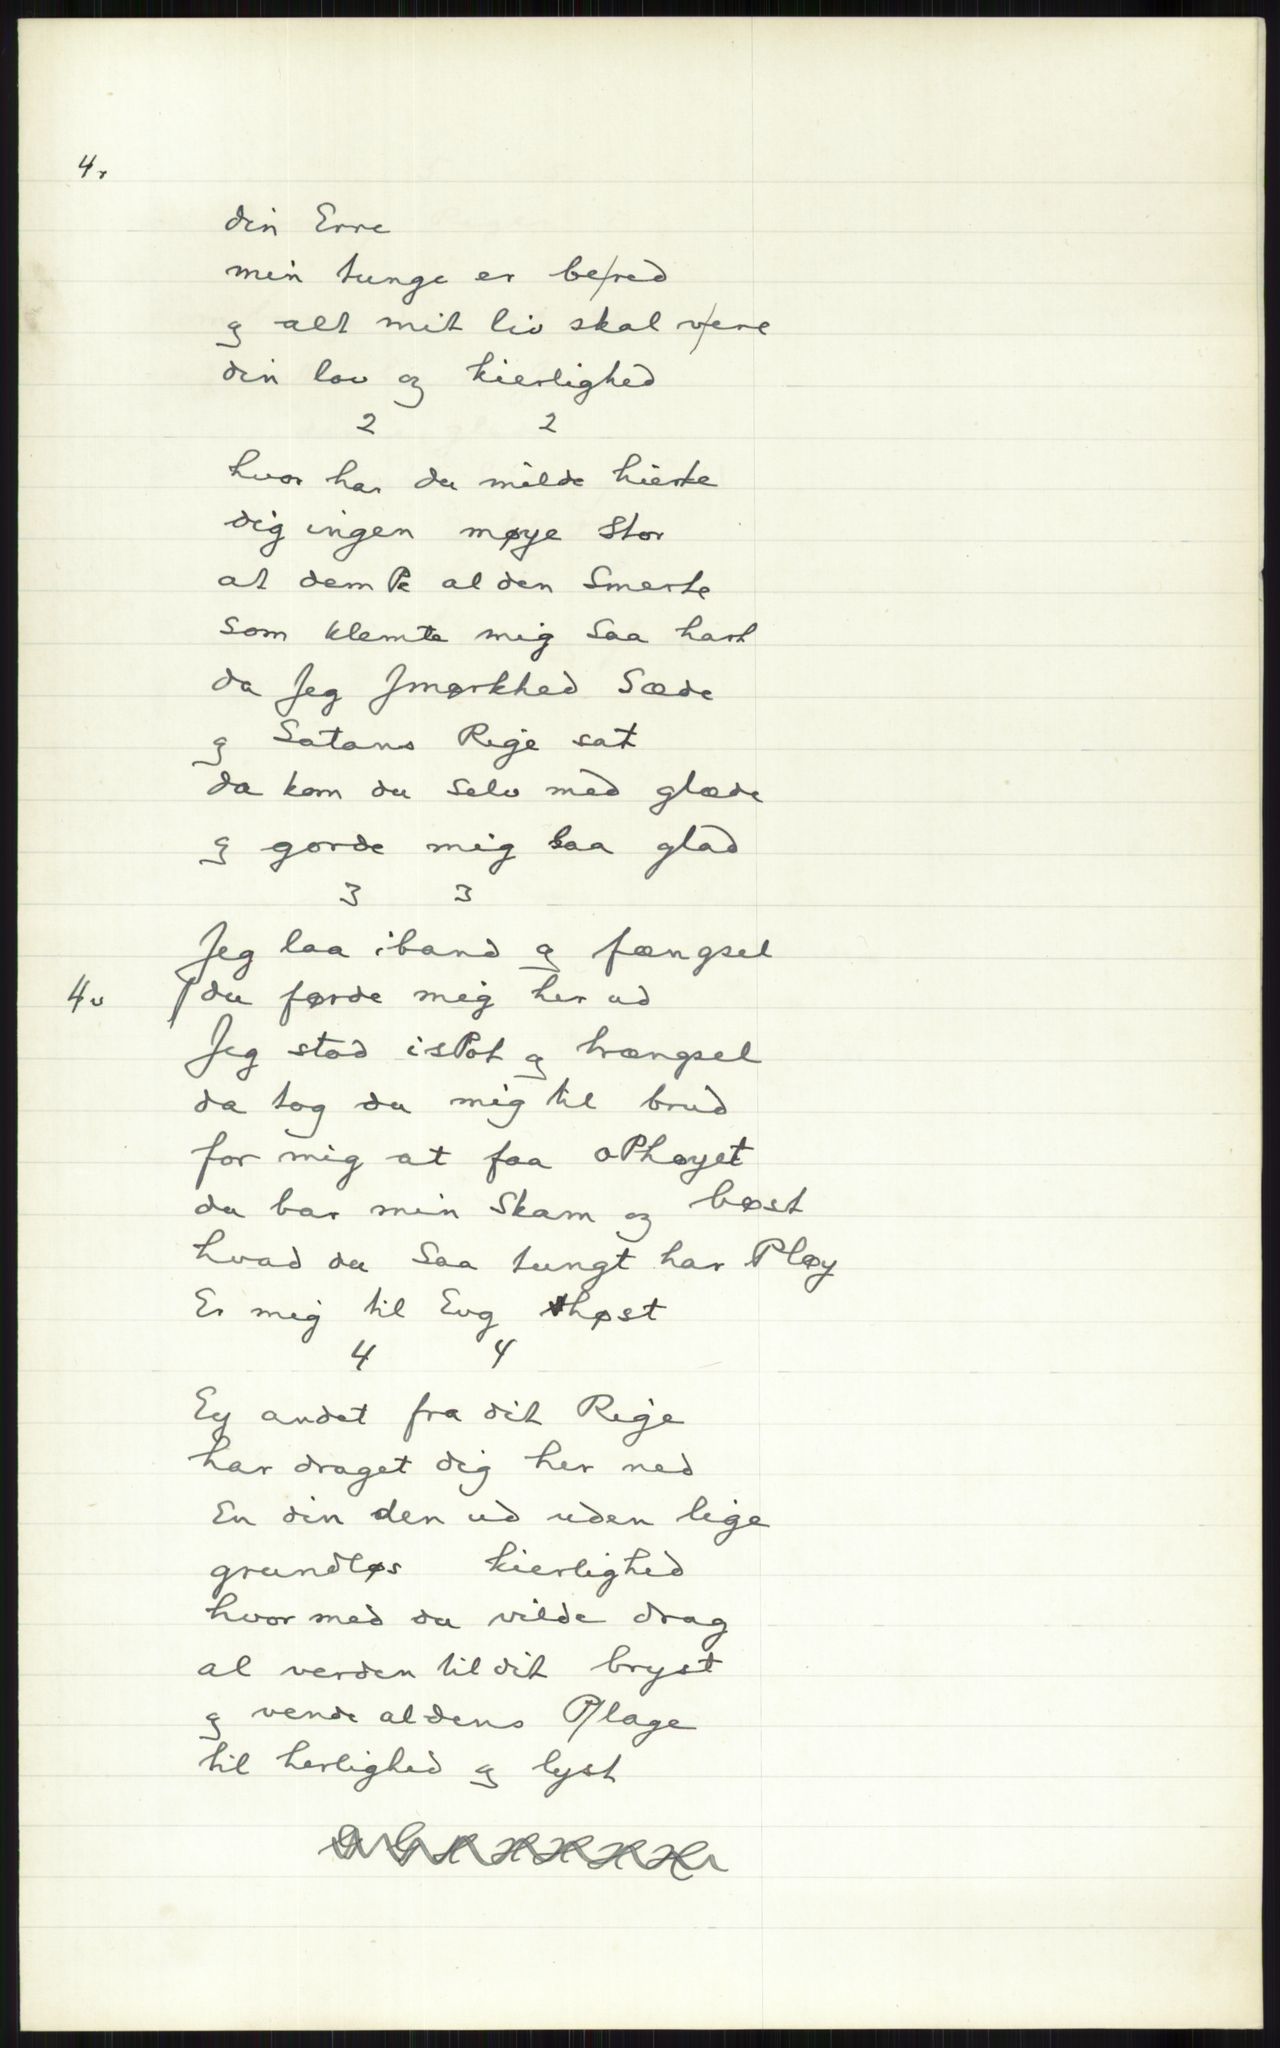 4r
din Erre
min tunge er be/red
og alt mit liv skal v/ere
din lov og kierlighed
2 2
hvor har du milde hierte
dig ingen møye stor
at dem Pe al den Smerte
som klemte mig Saa hart
da Jeg Jmørkhed Sæde
og Satans Rige sat
da kom du Selv med glæde
og gorde mig saa glad
3 3
Jeg laa iband og fængsel
4v / du førde mig her ud
Jeg stod isPot og trængsel
da tog du mig til brud
for mig at faa oPhøyet
du bar min Skam og bøst
hvad du Saa tungt har Pløy
Er mig til Evg høst
4 4
Ey andet fra dit Rige
har draget dig her ned
En din den ud uden lige
grundløs kierlighed
hvor med du vilde drag
al verden til dit bryst
og vende al dens P/lage
til herlighed og lyst